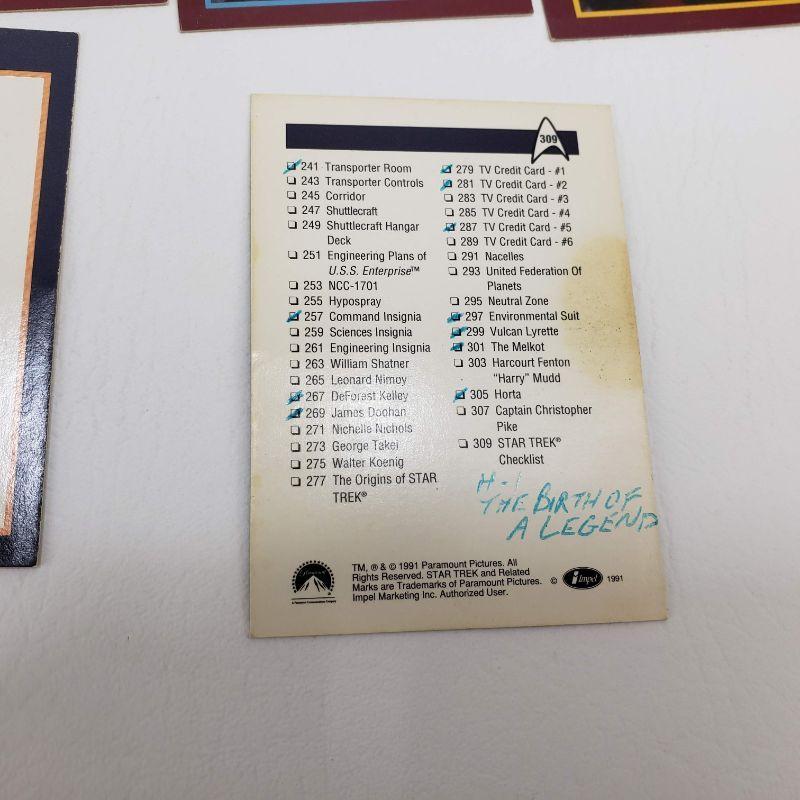 309
241 Transporter Room
243 Transporter Controls
245 Corridor
247 Shuttlecraft
249 Shuttlecraft Hangar
Deck
251 Engineering Plans of
U.S.S. Enterprise™
253 NCC-1701
255 Hypospray
257 Command Insignia
259 Sciences Insignia
261 Engineering Insignia
263 William Shatner
265 Leonard Nimoy
267 DeForest Kelley
269 James Doohan
271 Nichelle Nichols
273 George Takei
275 Walter Koenig
277 The Origins of STAR
TREK®
279 TV Credit Card - #1
281 TV Credit Card - #2
283 TV Credit Card - #3
285 TV Credit Card - #4
287 TV Credit Card - #5
289 TV Credit Card - #6
291 Nacelles
293 United Federation Of
Planets
295 Neutral Zone
297 Environmental Suit
299 Vulcan Lyrette
301 The Melkot
303 Harcourt Fenton
"Harry" Mudd
305 Horta
307 Captain Christopher
Pike
309 STAR TREK®
Checklist
H-1
THE BIRTH OF
A LEGEND
Paramount
A Paramount Communications Company
TM, ® & © 1991 Paramount Pictures. All
Rights Reserved. STAR TREK and Related
Marks are Trademarks of Paramount Pictures.
Impel Marketing Inc. Authorized User.
© Impel 1991